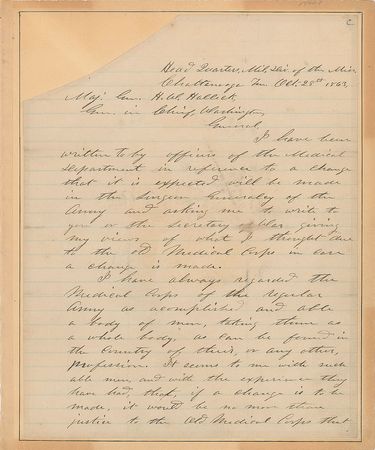 C.
Head Quarters, Mil. Div. of the Miss.
Chattanooga Ten. Oct. 28th 1863,
Maj. Gen. H. W. Halleck,
Gen. in Chief, Washington,
General,
I have been
written to by officers of the Medical
Department in reference to a change
that it is expected will be made
in the Surgeon Generalcy of the
Army and asking me to write to
you or the Secretary of War giving
my views of what I thought due
to the old Medical Corps in case
a change is made.
I have always regarded the
Medical Corps of the regular
Army as accomplished and able
a body of men, taking them as
a whole body, as can be found in
the Country of theirs, or any other,
profession. It seems to me with such
able men, and with the experience they
have had, that, if a change is to be
made, it would be no more than
justice to the Old Medical Corps that